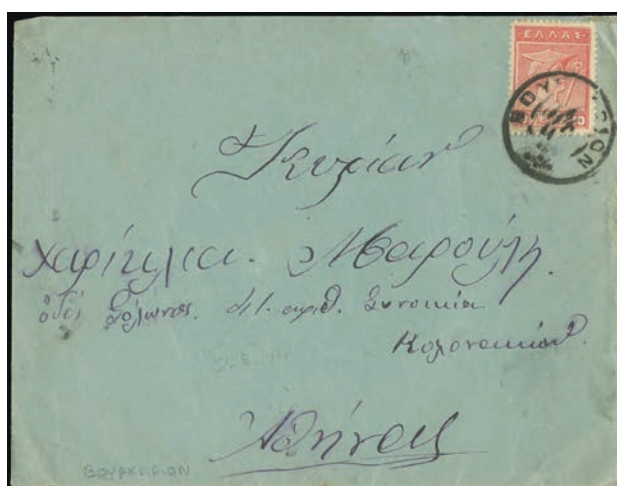 ΕΛΛΑΣ
Κυρίαν
Χαρίκλια. Μαρούλη.
ὁδός Σόλωνος. 41. αριθ. Συνοικία
Κολονακίου
2-5-14
Ἀθήνας
ΒΟΥΡΚΑΡΙΟΝ